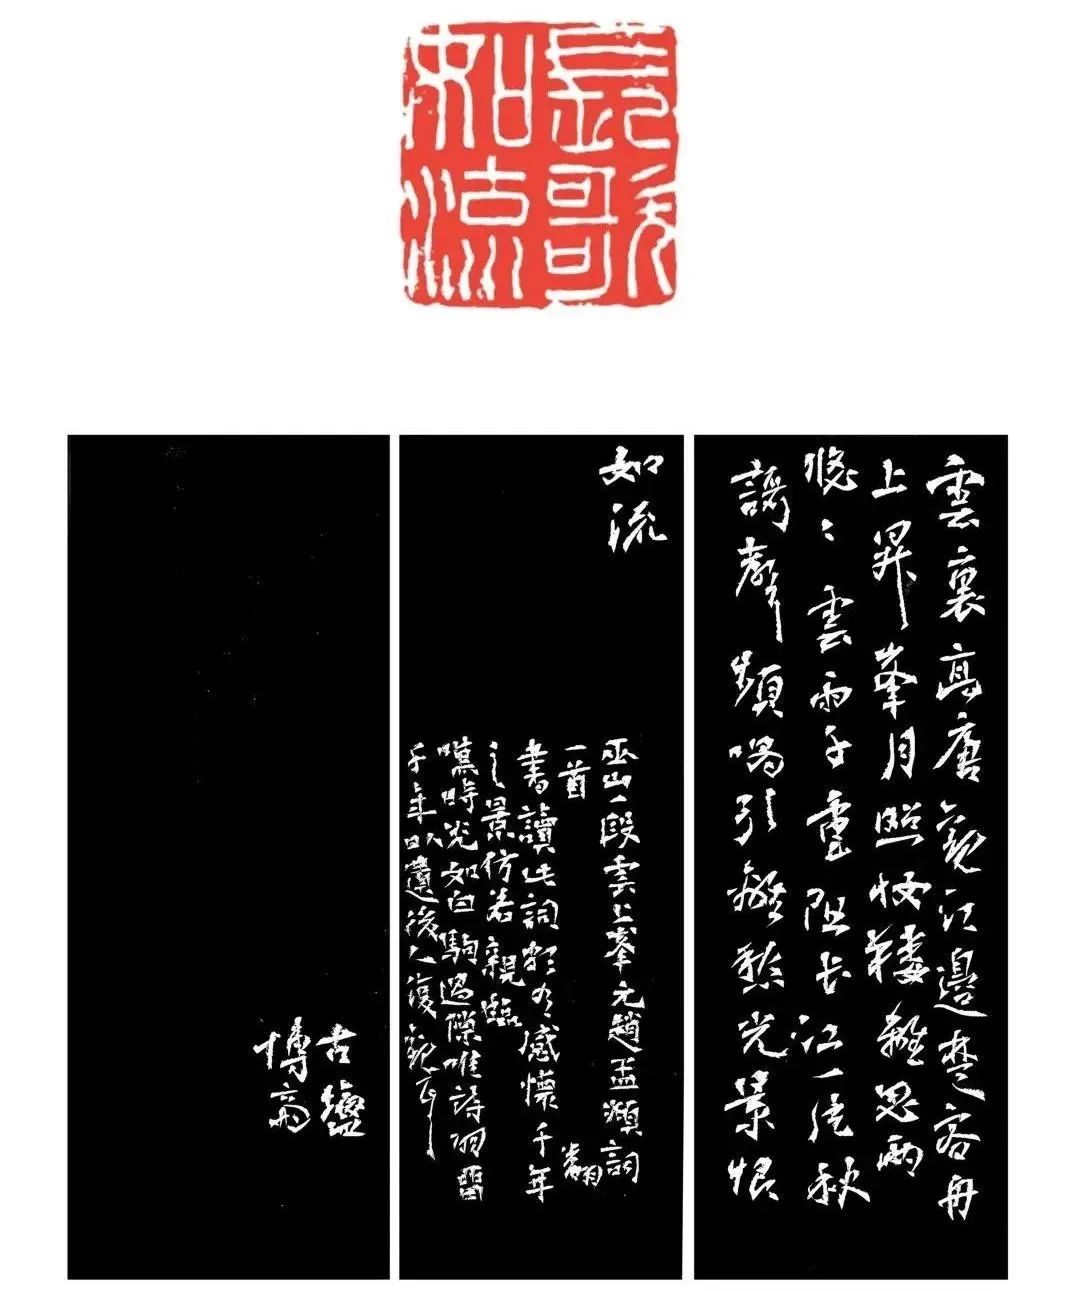 長歌
如流
雲裏高唐觀江邊楚客舟
上昇峯月照妝樓離思兩
悠〻雲雨千重阻長江一片秋
謌聲頻唱引離愁光景恨
如流
巫山一段雲上峯元趙孟頫詞
一首 翻
書讀此詞頗有感懷千年
之景仿若親臨
嘆時光如白駒過隙唯詩詞留
千年以遺後人復觀
古鹽
博齋